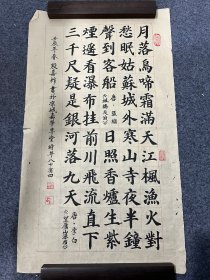 月落烏啼霜滿天江楓漁火對
愁眠姑蘇城外寒山寺夜半鐘
聲到客船 唐 張繼 楓橋夜泊 日照香爐生紫
煙遙看瀑布挂前川飛流直下
三千尺疑是銀河落九天 唐 李白 望廬山瀑布
壬辰年春 書於京城 時年八十有四